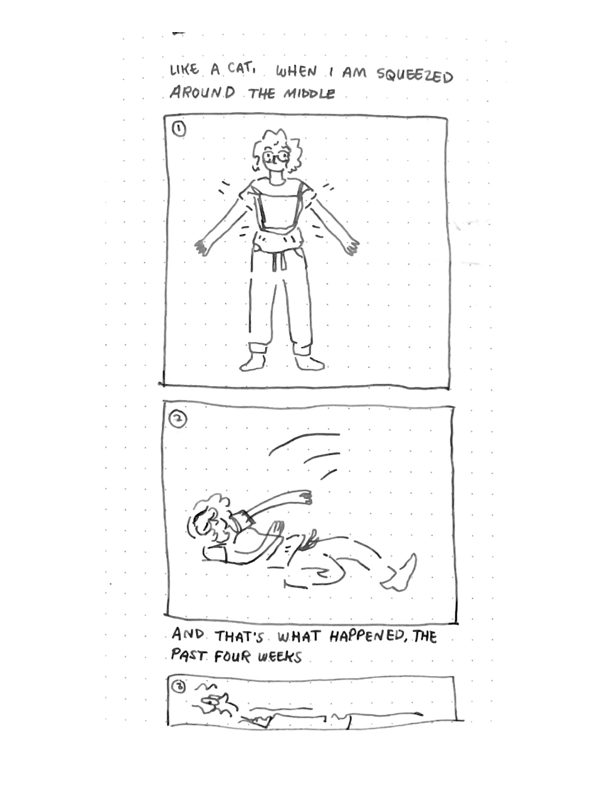 LIKE A CAT, WHEN I AM SQUEEZED
AROUND THE MIDDLE
1
2
AND THAT'S WHAT HAPPENED, THE
PAST FOUR WEEKS
3